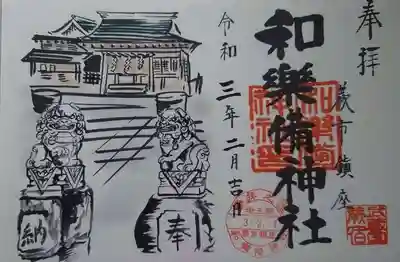 奉拝
蕨市鎮座
和樂備神社
令和三年二月吉日
奉
納